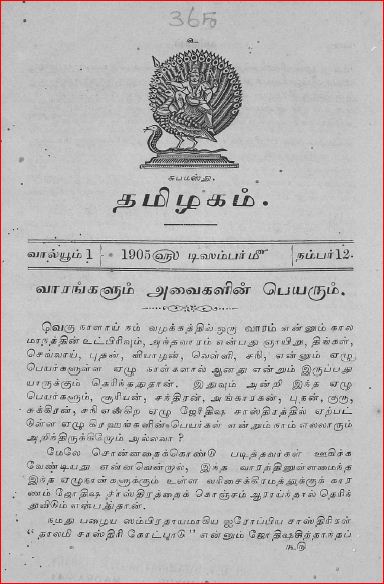 365
உ
சுபமஸ்து.
தமிழகம்.
வால்யூம் 1 - 1905௵ டிஸம்பர்௴ நம்பர் 12.
வாரங்களும் அவைகளின் பெயரும்.
வெகு நாளாய் நம் வழக்கத்தில் ஒரு வாரம் என்னும் கால
மானத்தின் உட்பிரிவும், அந்தவாரம் என்பது ஞாயிறு, திங்கள்,
செவ்வாய், புதன், வியாழன், வெள்ளி, சனி, என்னும் ஏழு
பெயர்களுள்ள ஏழு நாள்களால் ஆனது என்றும் இருப்பது
யாருக்கும் தெரிந்ததுதான். இதுவும் அன்றி இந்த ஏழு
பெயர்களும், சூரியன், சந்திரன், அங்காரகன், புதன், குரு,
சுக்கிரன், சநி என்கிற ஏழு ஜோதிஷ சாஸ்திரத்தில் ஏற்பட்
டுள்ள ஏழு கிரஹங்களின் பெயர்கள் என்றும் நாம் எல்லாரும்
அறிந்திருக்கிறோம் அல்லவா?
மேலே சொன்னதைக்கொண்டு படித்தவர்கள் ஊகிக்க
வேண்டியது என்னவென்றால், இந்த வாரத்தினுள்ளமைந்த
இந்த ஏழுநாள்களுக்கும் உள்ள வரிசைக்கிரமத்துக்குக் கார
ணம் ஜோதிஷ சாஸ்திரத்தைக் கொஞ்சம் ஆராய்ந்தால் தெரிந்
துவிடும் என்பதுதான்.
நமது பழைய ஸம்பிரதாயமாகிய ஐரோப்பிய சாஸ்திரிகள்
"தாலமி சாஸ்திரி கோட்பாடு" என்னும் ஜோதிஷசித்தாந்தப்
படு